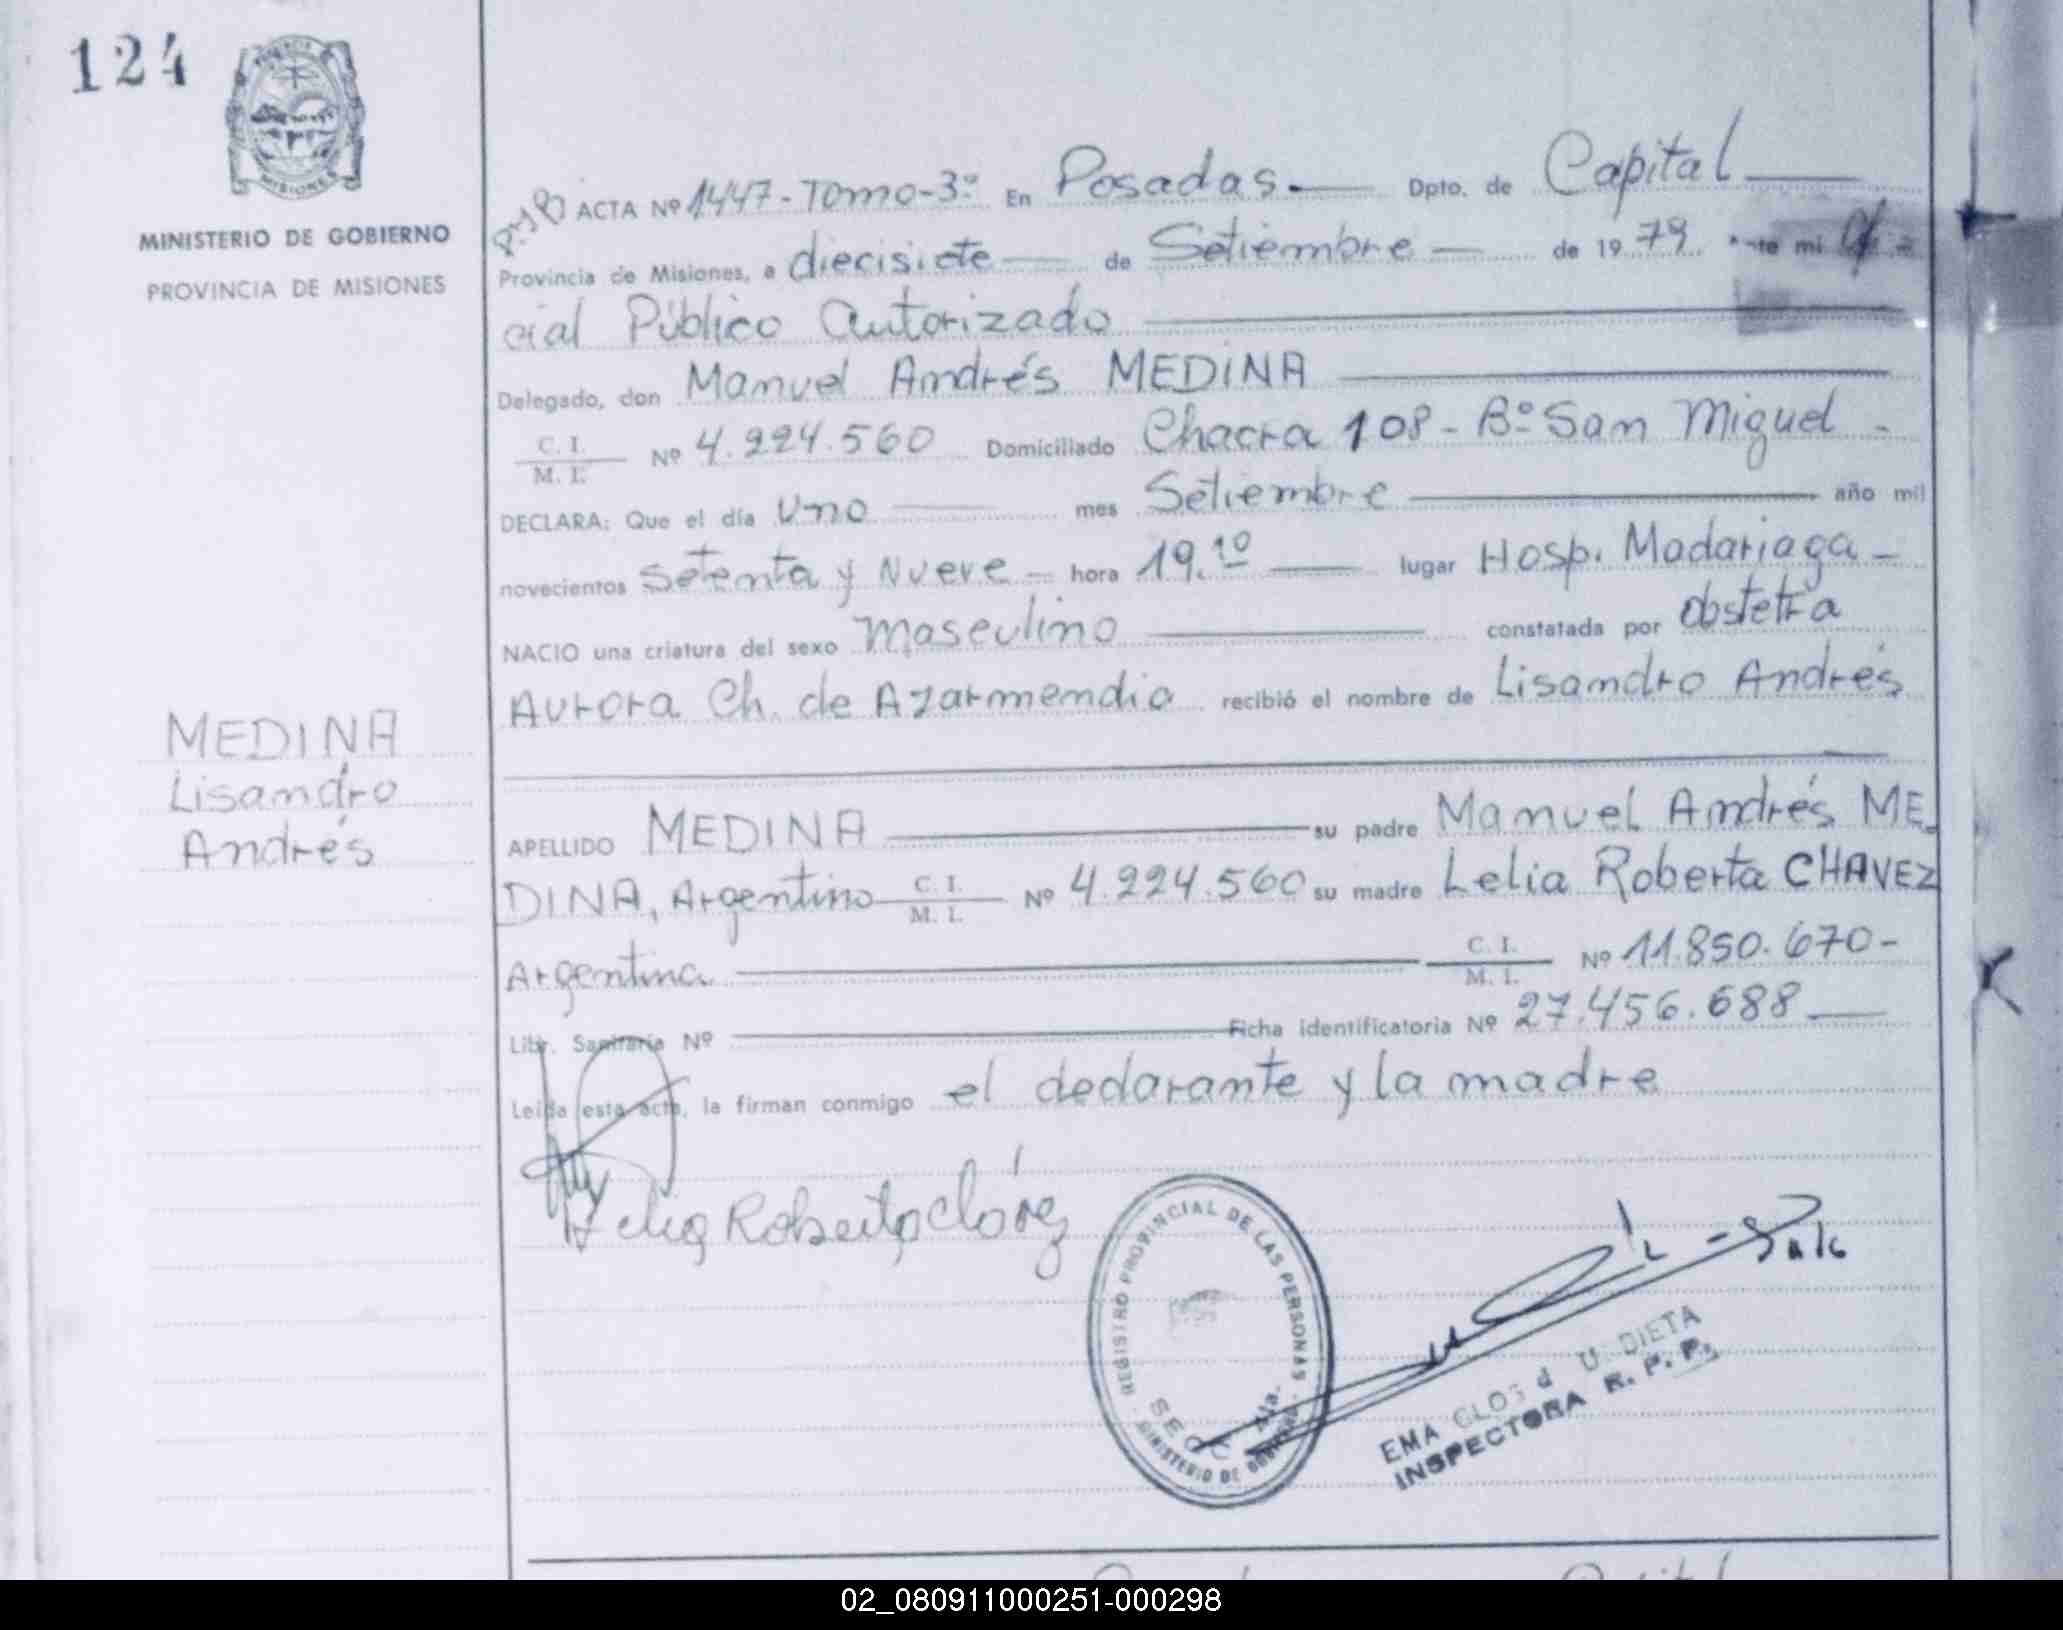 124
MISIONES
MINISTERIO DE GOBIERNO
PROVINCIA DE MISIONES
MEDINA
Lisandro
Andrés
ACTA Nº 1447-Tomo-3º En Posadas.— Dpto. de Capital—
Provincia de Misiones, a diecisiete— de Setiembre— de 1979. te mi Ofi-
cial Público Autorizado
Delegado, don Manuel Andrés MEDINA
C. I.
M. I. Nº 4.224.560 Domiciliado Chacra 108- Bº San Miguel -
DECLARA: Que el día Uno mes Setiembre año mil
novecientos setenta y Nueve— hora 19.10 — lugar Hosp. Madariaga—
NACIO una criatura del sexo masculino constatada por obstetra
Aurora Ch. de Azarmendia recibió el nombre de Lisandro Andrés
APELLIDO MEDINA su padre Manuel Andrés ME-
DINA, Argentino C. I.
M. I. Nº 4.224.560 su madre Lelia Roberta CHAVEZ
Argentina C. I.
M. I. Nº 11.850.670-
Libr. Sanitaria Nº Ficha identificatoria Nº 27.456.688—
Leída esta acta, la firman conmigo el declarante y la madre
Lelia Roberta Chávez
REGISTRO PROVINCIAL DE LAS PERSONAS
SECC.
MINISTERIO DE GOBIERNO
EMA
DIETA
INSPECTORA R. P. P.
02_080911000251-000298